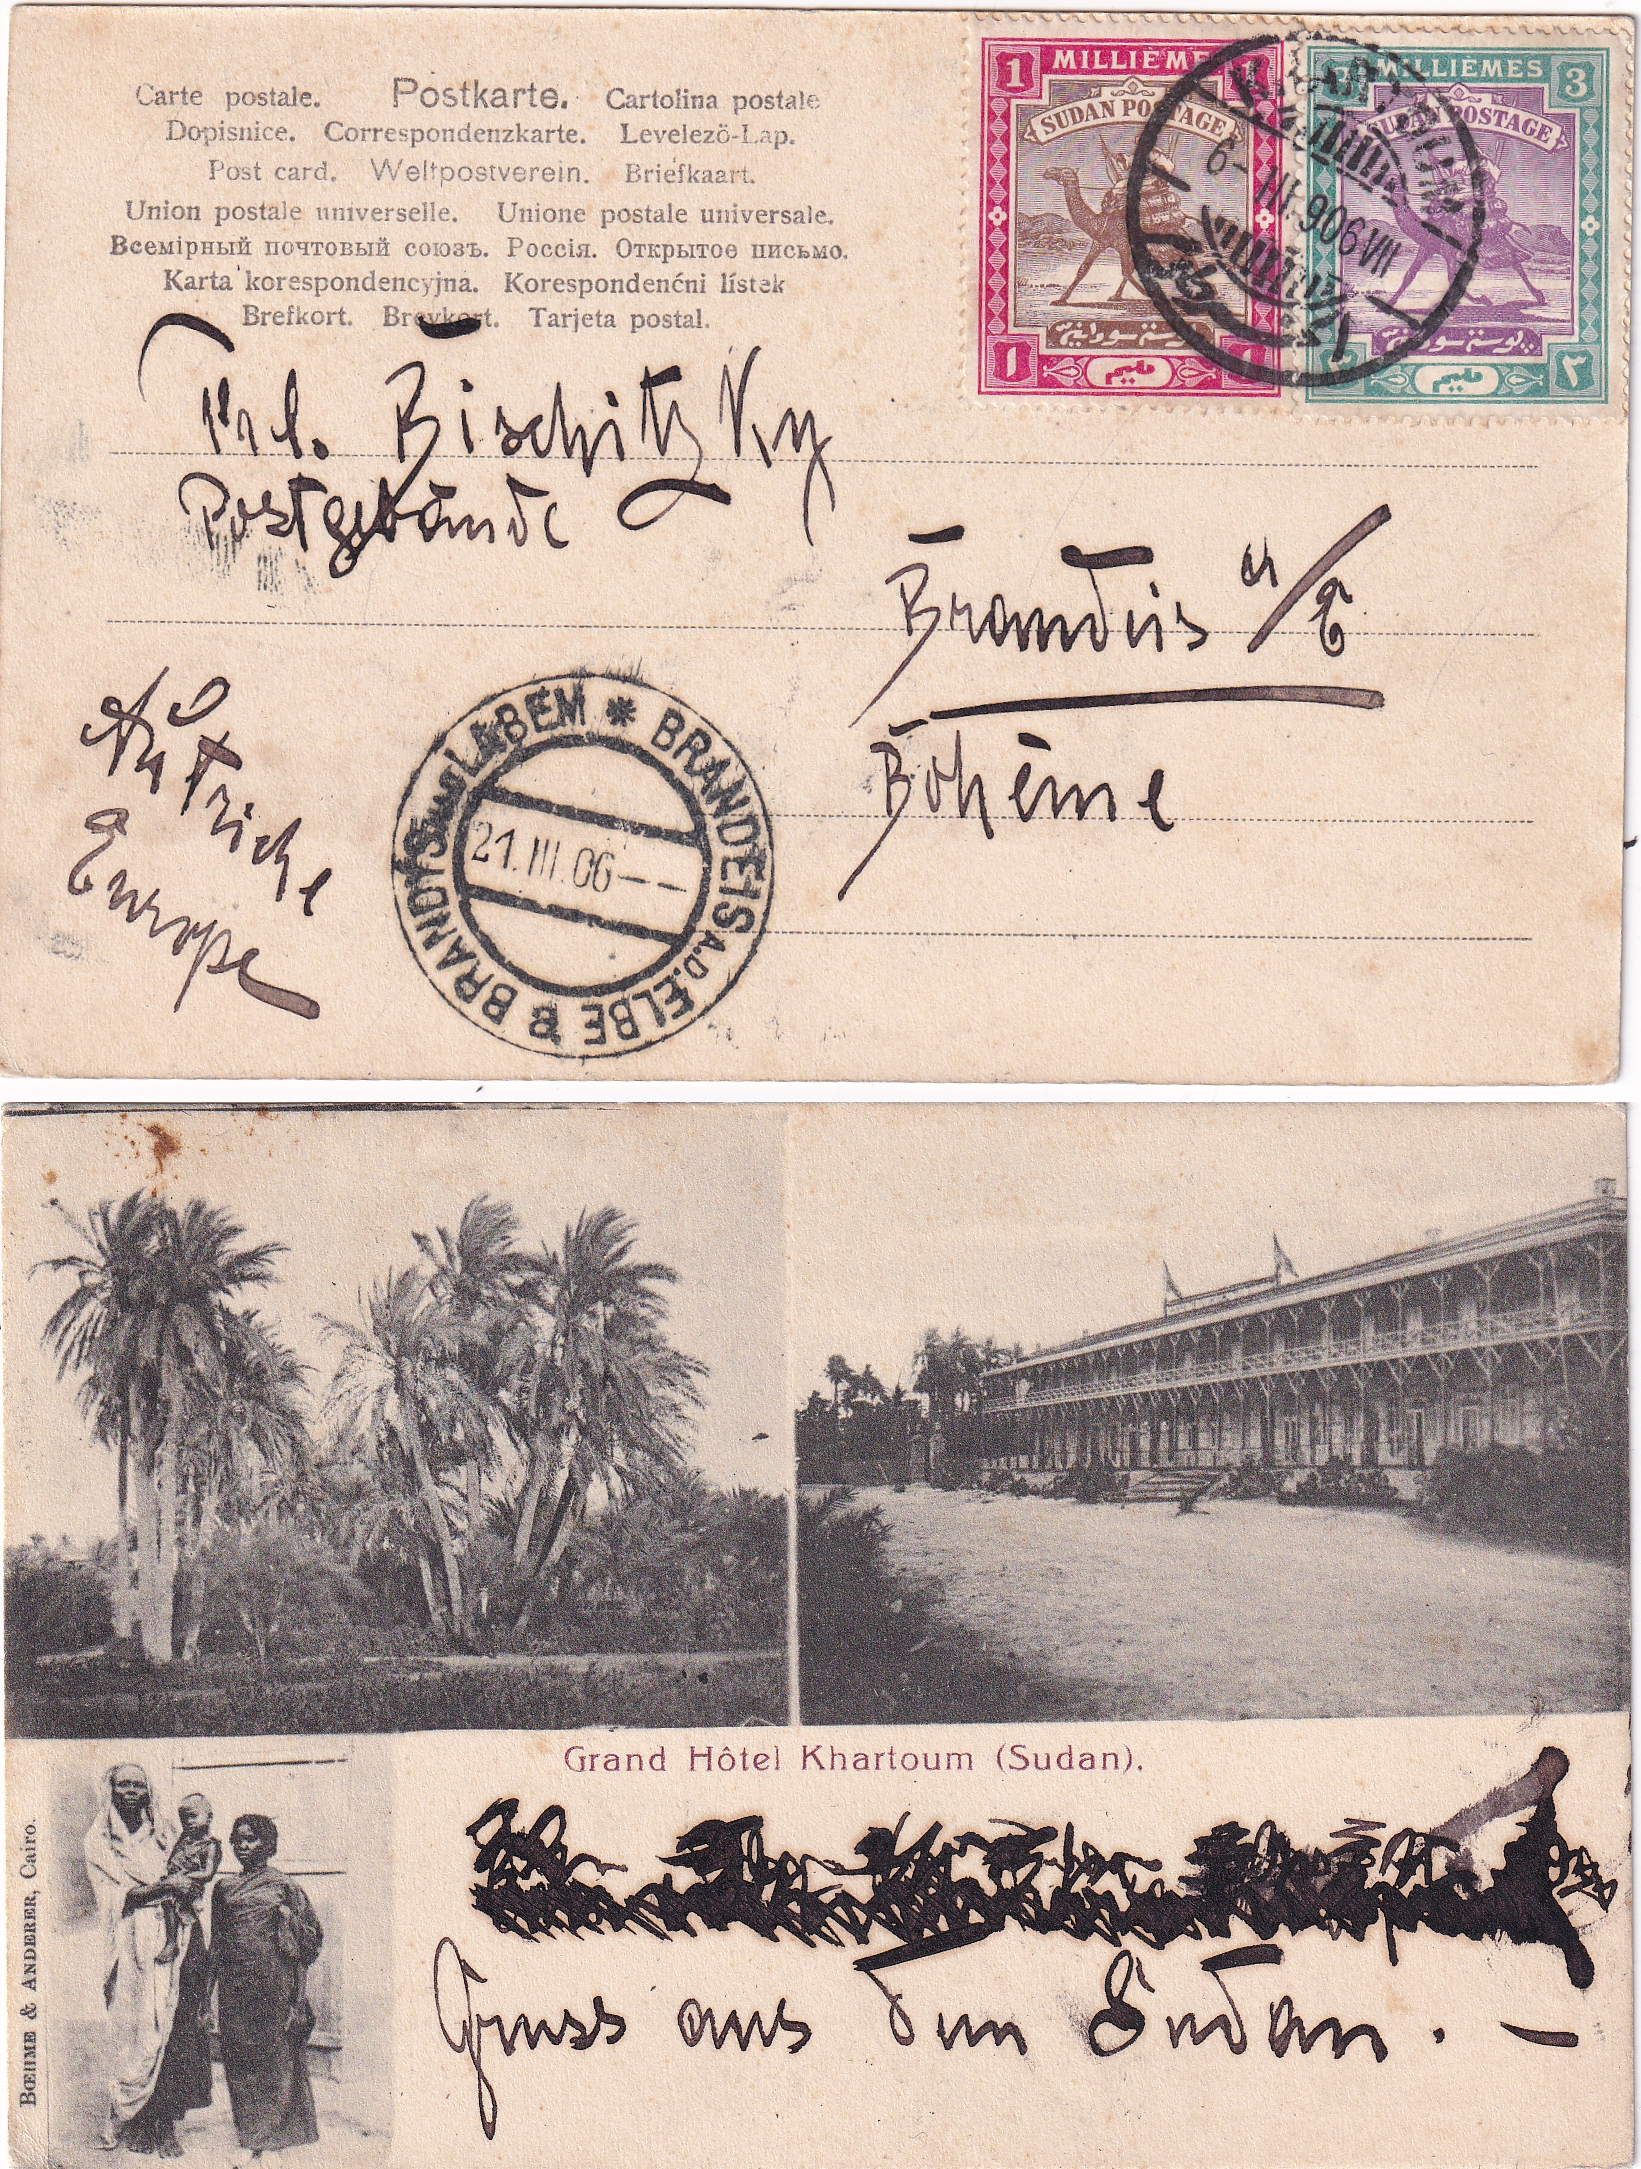 Carte postale. Postkarte. Cartolina postale
Dopisnice. Correspondenzkarte. Levelező-Lap.
Post card. Weltpostverein. Briefkaart.
Union postale universelle. Unione postale universale.
Всемірный почтовый союзъ. Россія. Открытое письмо.
Karta korespondencyjna. Korespondenćni lístek
Brefkort. Brevkort. Tarjeta postal.
1 MILLIÈME 1
SUDAN POSTAGE
بوستة سودانية
١ مليم ١
3 MILLIÈMES 3
SUDAN POSTAGE
بوستة سودانية
٣ مليم ٣
KHARTOUM
6-III.906 VII
Frl. Bischitzky
Postgebäude
Brandeis a/E
Bohême
Autriche
Europe
BRANDÝS nad LABEM * BRANDEIS A.D. ELBE
21.III.06--
Grand Hôtel Khartoum (Sudan).
BŒHME & ANDERER, Cairo.
Gruss aus dem Sudan. —